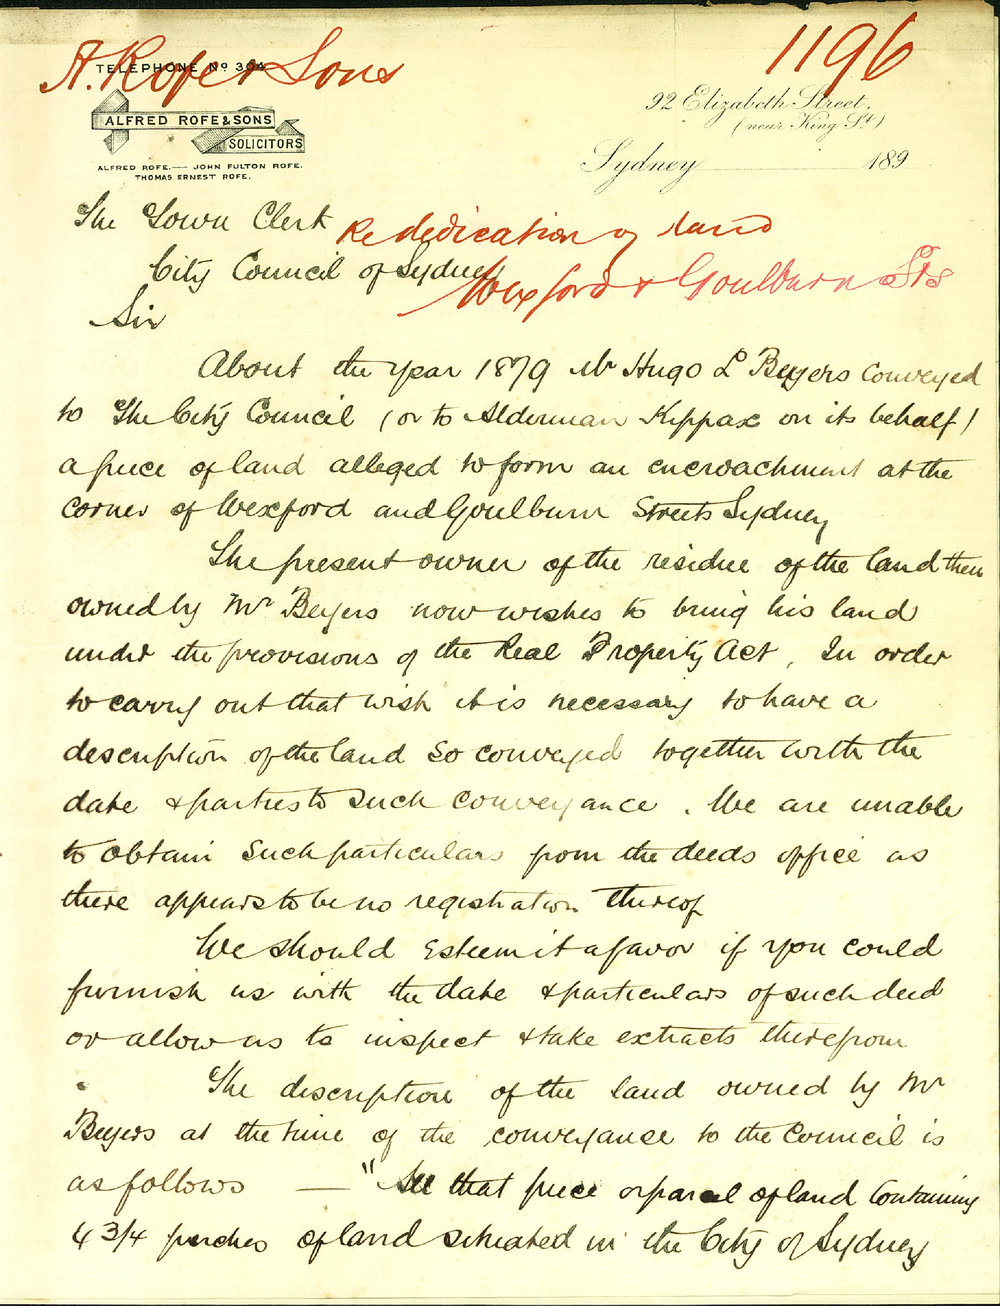 A. Rofe & Sons
1196
TELEPHONE No 394
ALFRED ROFE & SONS
SOLICITORS
ALFRED ROFE.— JOHN FULTON ROFE.
THOMAS ERNEST ROFE.
92 Elizabeth Street,
(near King St)
Sydney 189
The Town Clerk
Re dedication of land
City Council of Sydney
Wexford & Goulburn Sts
Sir
About the year 1879 Mr Hugo L Beyers conveyed
to The City Council (or to Alderman Kippax on its behalf)
a piece of land alleged to form an encroachment at the
corner of Wexford and Goulburn Streets Sydney
The present owner of the residue of the land then
owned by Mr Beyers now wishes to bring his land
under the provisions of the Real Property Act, In order
to carry out that wish it is necessary to have a
description of the land so conveyed together with the
date & parties to such conveyance. We are unable
to obtain such particulars from the deeds office as
there appears to be no registration thereof
We should esteem it a favor if you could
furnish us with the date & particulars of such deed
or allow us to inspect & take extracts therefrom
The description of the land owned by Mr
Beyers at the time of the conveyance to the Council is
as follows — "All that piece or parcel of land containing
4 3/4 perches of land situated in the City of Sydney